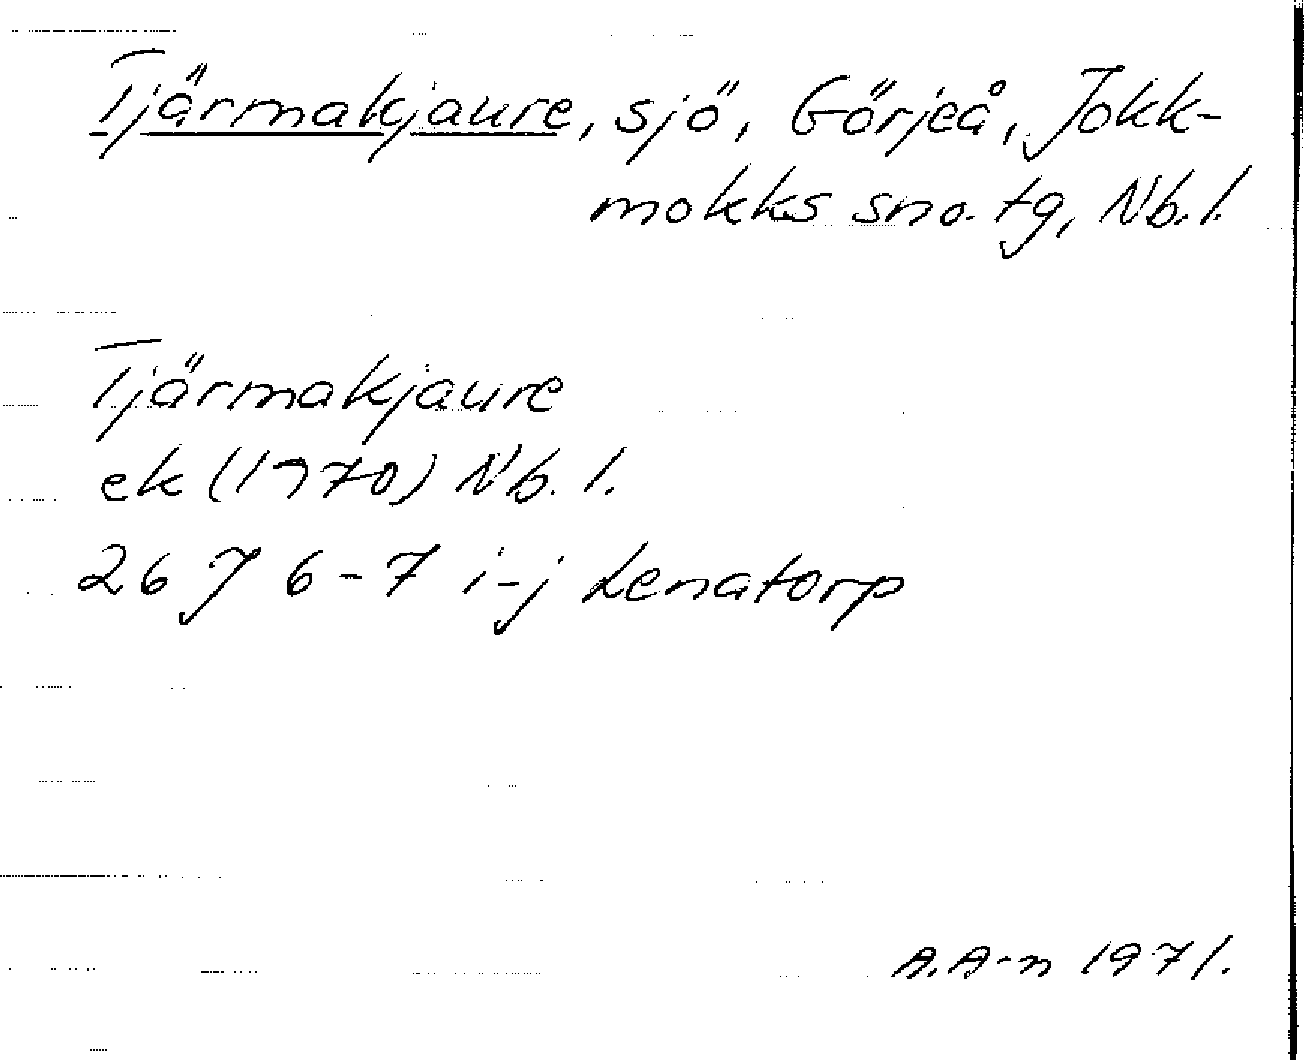 Tjärmakjaure, sjö, Görjeå, Jokk-
mokks sno. tg, Nb. l.
Tjärmakjaure
ek (1970) Nb. l.
26 J 6-7 i-j Lenatorp
A. A-n 1971.